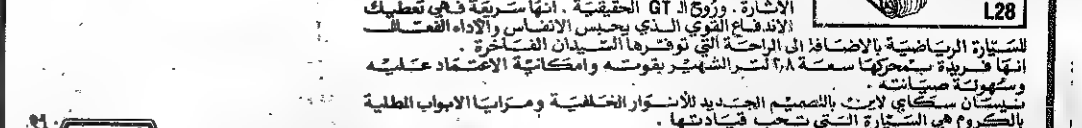 الاثارة . وروح الـ GT الحقيقية . انها سريعة فهي تعطيك
الاندفاع القوي الذي يحبس الانفاس والأداء الفعال
L28
للسيارة الرياضية بالاضافة الى الراحة التي توفرها السيدان الفاخرة .
إنها فريدة بمحركها سعة ٢,٨ لتر الشهير بقوته وامكانية الاعتماد عليه
وسهولة صيانته .
نيسان سكاي لاين بالتصميم الجديد للأنوار الخلفية ومرايا الابواب المطلية
بالكروم هي السيارة التي تحب قيادتها .